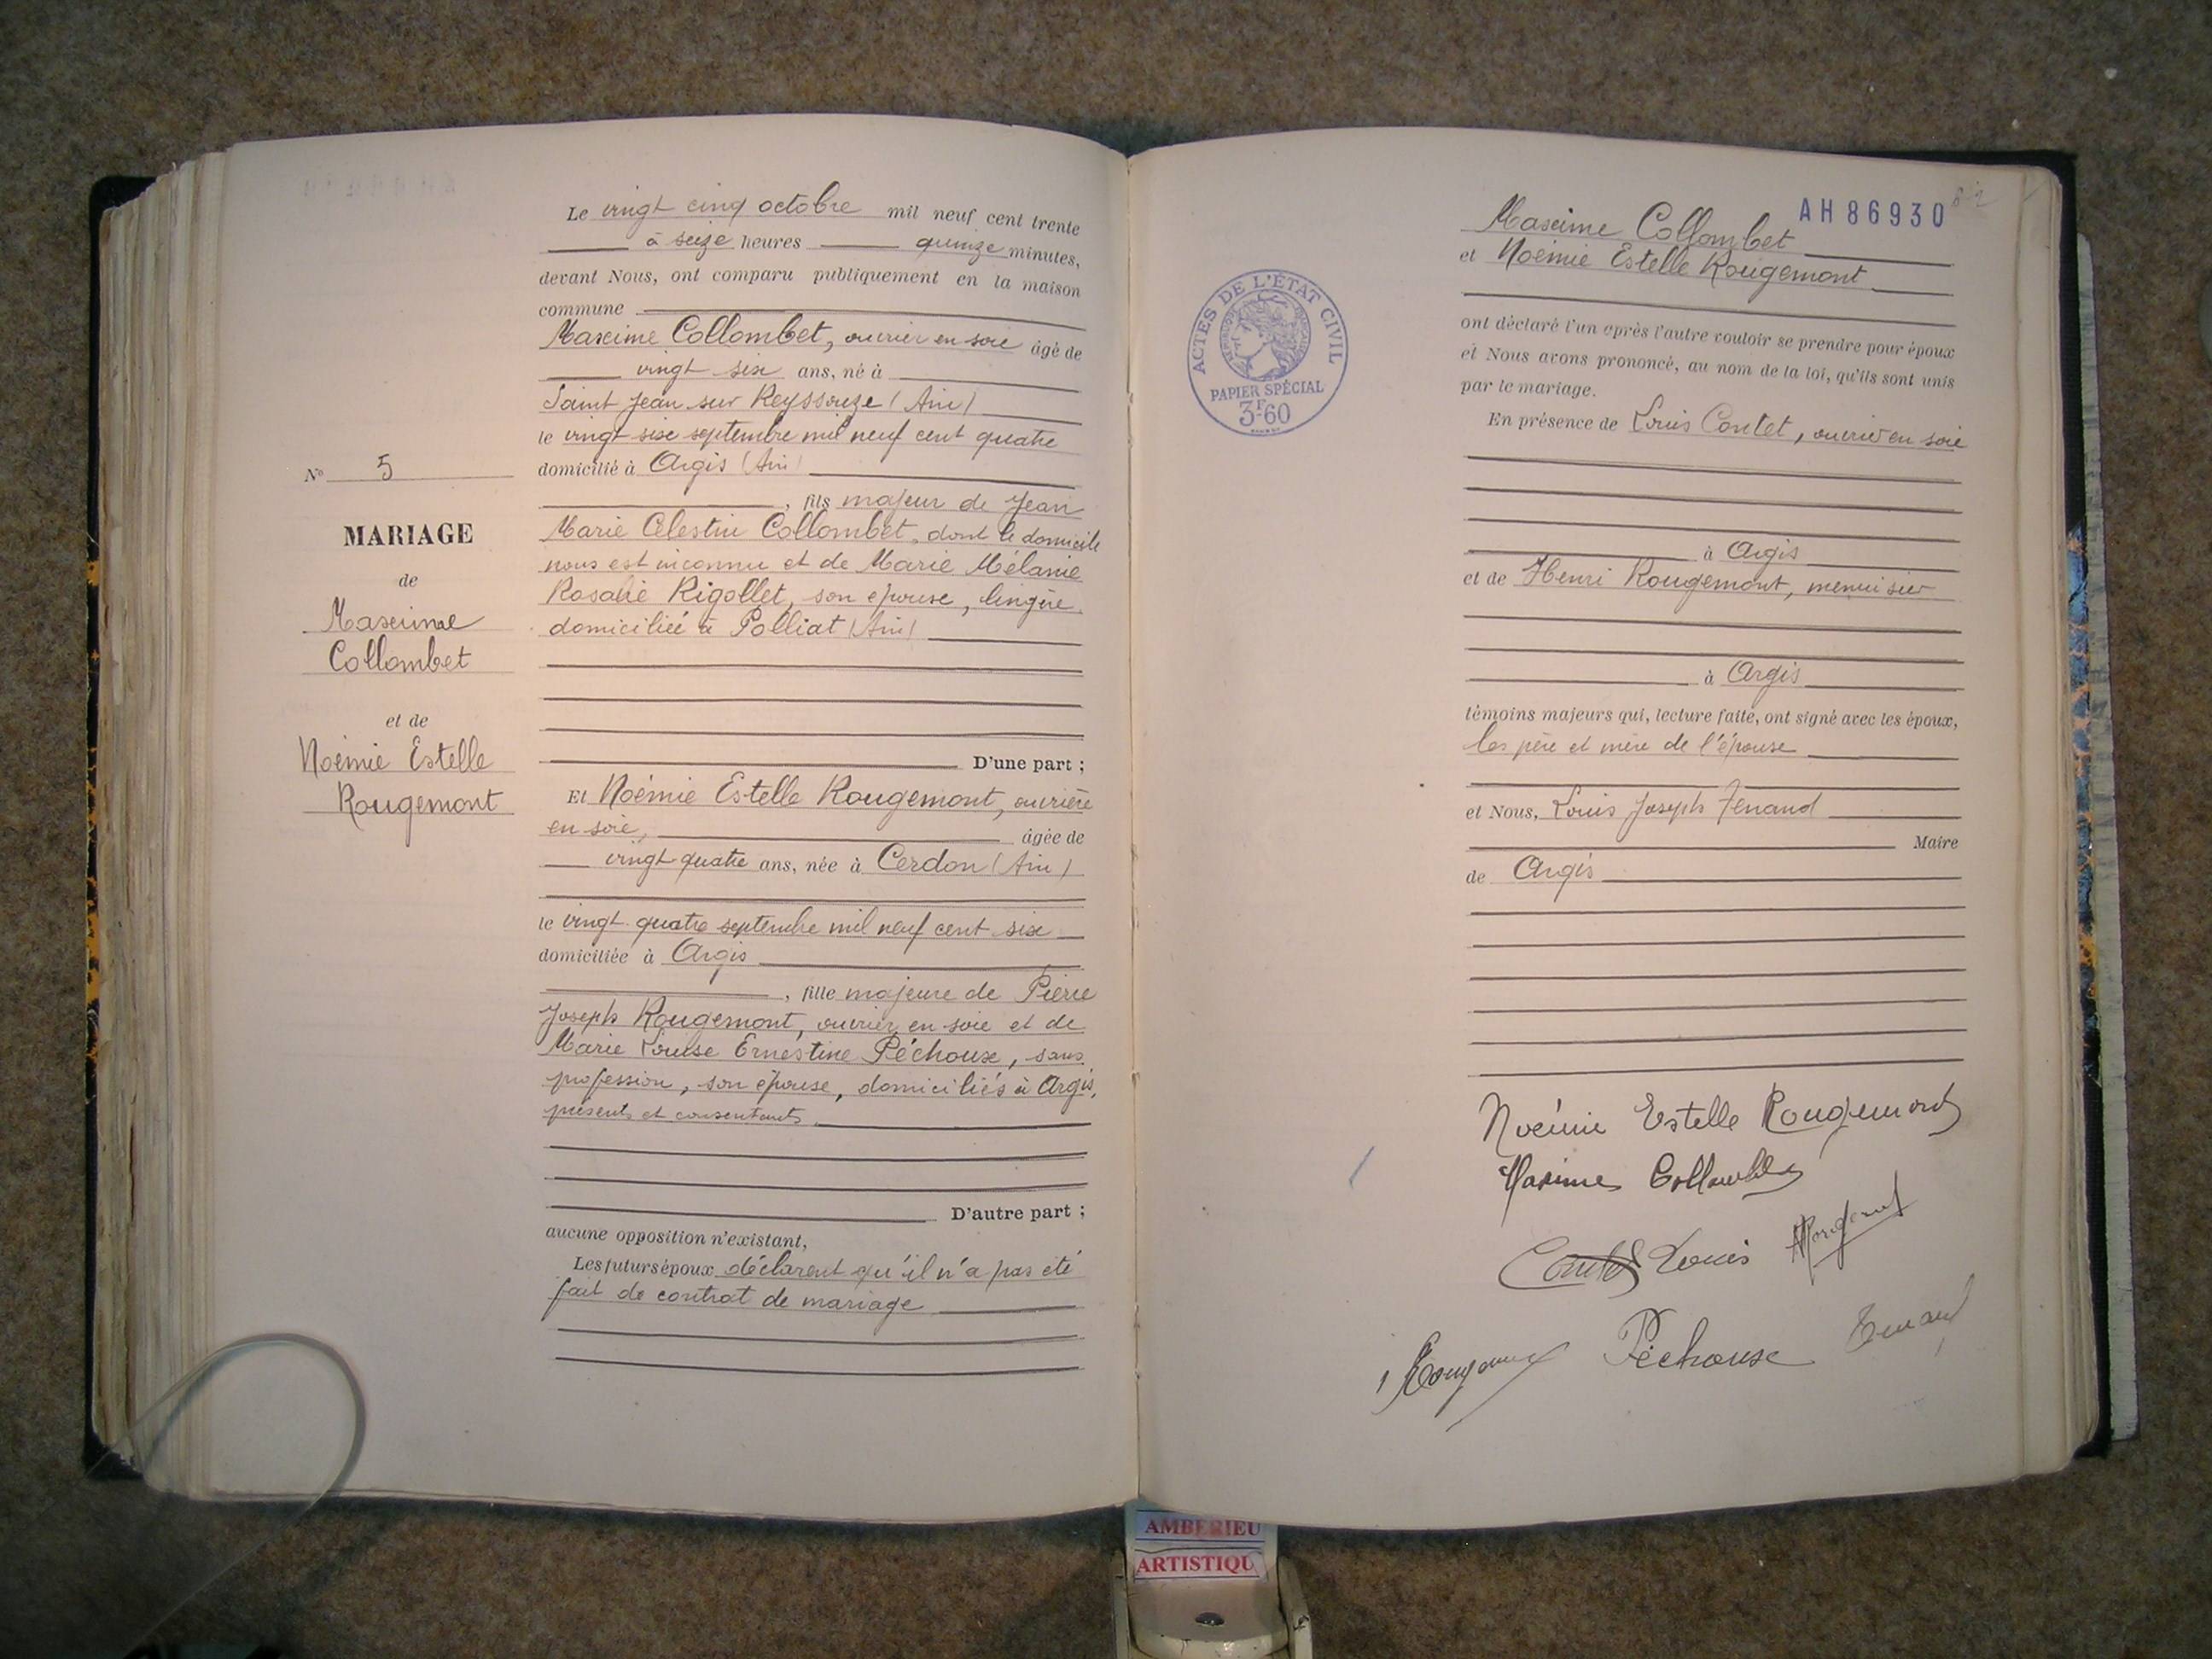 Le vingt cinq octobre mil neuf cent trente
à seize heures quinze minutes,
devant Nous, ont comparu publiquement en la maison
commune
Maxime Collombet, ouvrier en soie âgé de
vingt six ans, né à
Saint Jean sur Reyssouze (Ain)
le vingt six septembre mil neuf cent quatre
domicilié à Argis (Ain)
, fils majeur de Jean
Marie Célestin Collombet, dont le domicile
nous est inconnu et de Marie Mélanie
Rosalie Rigollet, son épouse, lingère
domiciliée à Polliat (Ain)
D'une part ;
Et Noémie Estelle Rougemont, ouvrière
en soie, âgée de
vingt quatre ans, née à Cerdon (Ain)
le vingt quatre septembre mil neuf cent six
domiciliée à Argis
, fille majeure de Pierre
Joseph Rougemont, ouvrier en soie et de
Marie Louise Ernestine Péchoux, sans
profession, son épouse, domiciliés à Argis,
présents et consentants
D'autre part ;
aucune opposition n'existant,
Les futurs époux déclarent qu'il n'a pas été
fait de contrat de mariage
N° 5
MARIAGE
de
Maxime
Collombet
et de
Noémie Estelle
Rougemont
AH 86930
82
Maxime Collombet
et Noémie Estelle Rougemont
ont déclaré l'un après l'autre vouloir se prendre pour époux
et Nous avons prononcé, au nom de la loi, qu'ils sont unis
par le mariage.
En présence de Louis Contet, ouvrier en soie
à Argis
et de Henri Rougemont, menuisier
à Argis
témoins majeurs qui, lecture faite, ont signé avec les époux,
les père et mère de l'épouse
et Nous, Louis Joseph Tenand
Maire
de Argis
Noémie Estelle Rougemont
Maxime Collombet
Contet Louis Rougemont
Rougemont Péchoux Tenand
ACTES DE L'ÉTAT CIVIL
PAPIER SPÉCIAL
3F60
AMBERIEU
ARTISTIQU